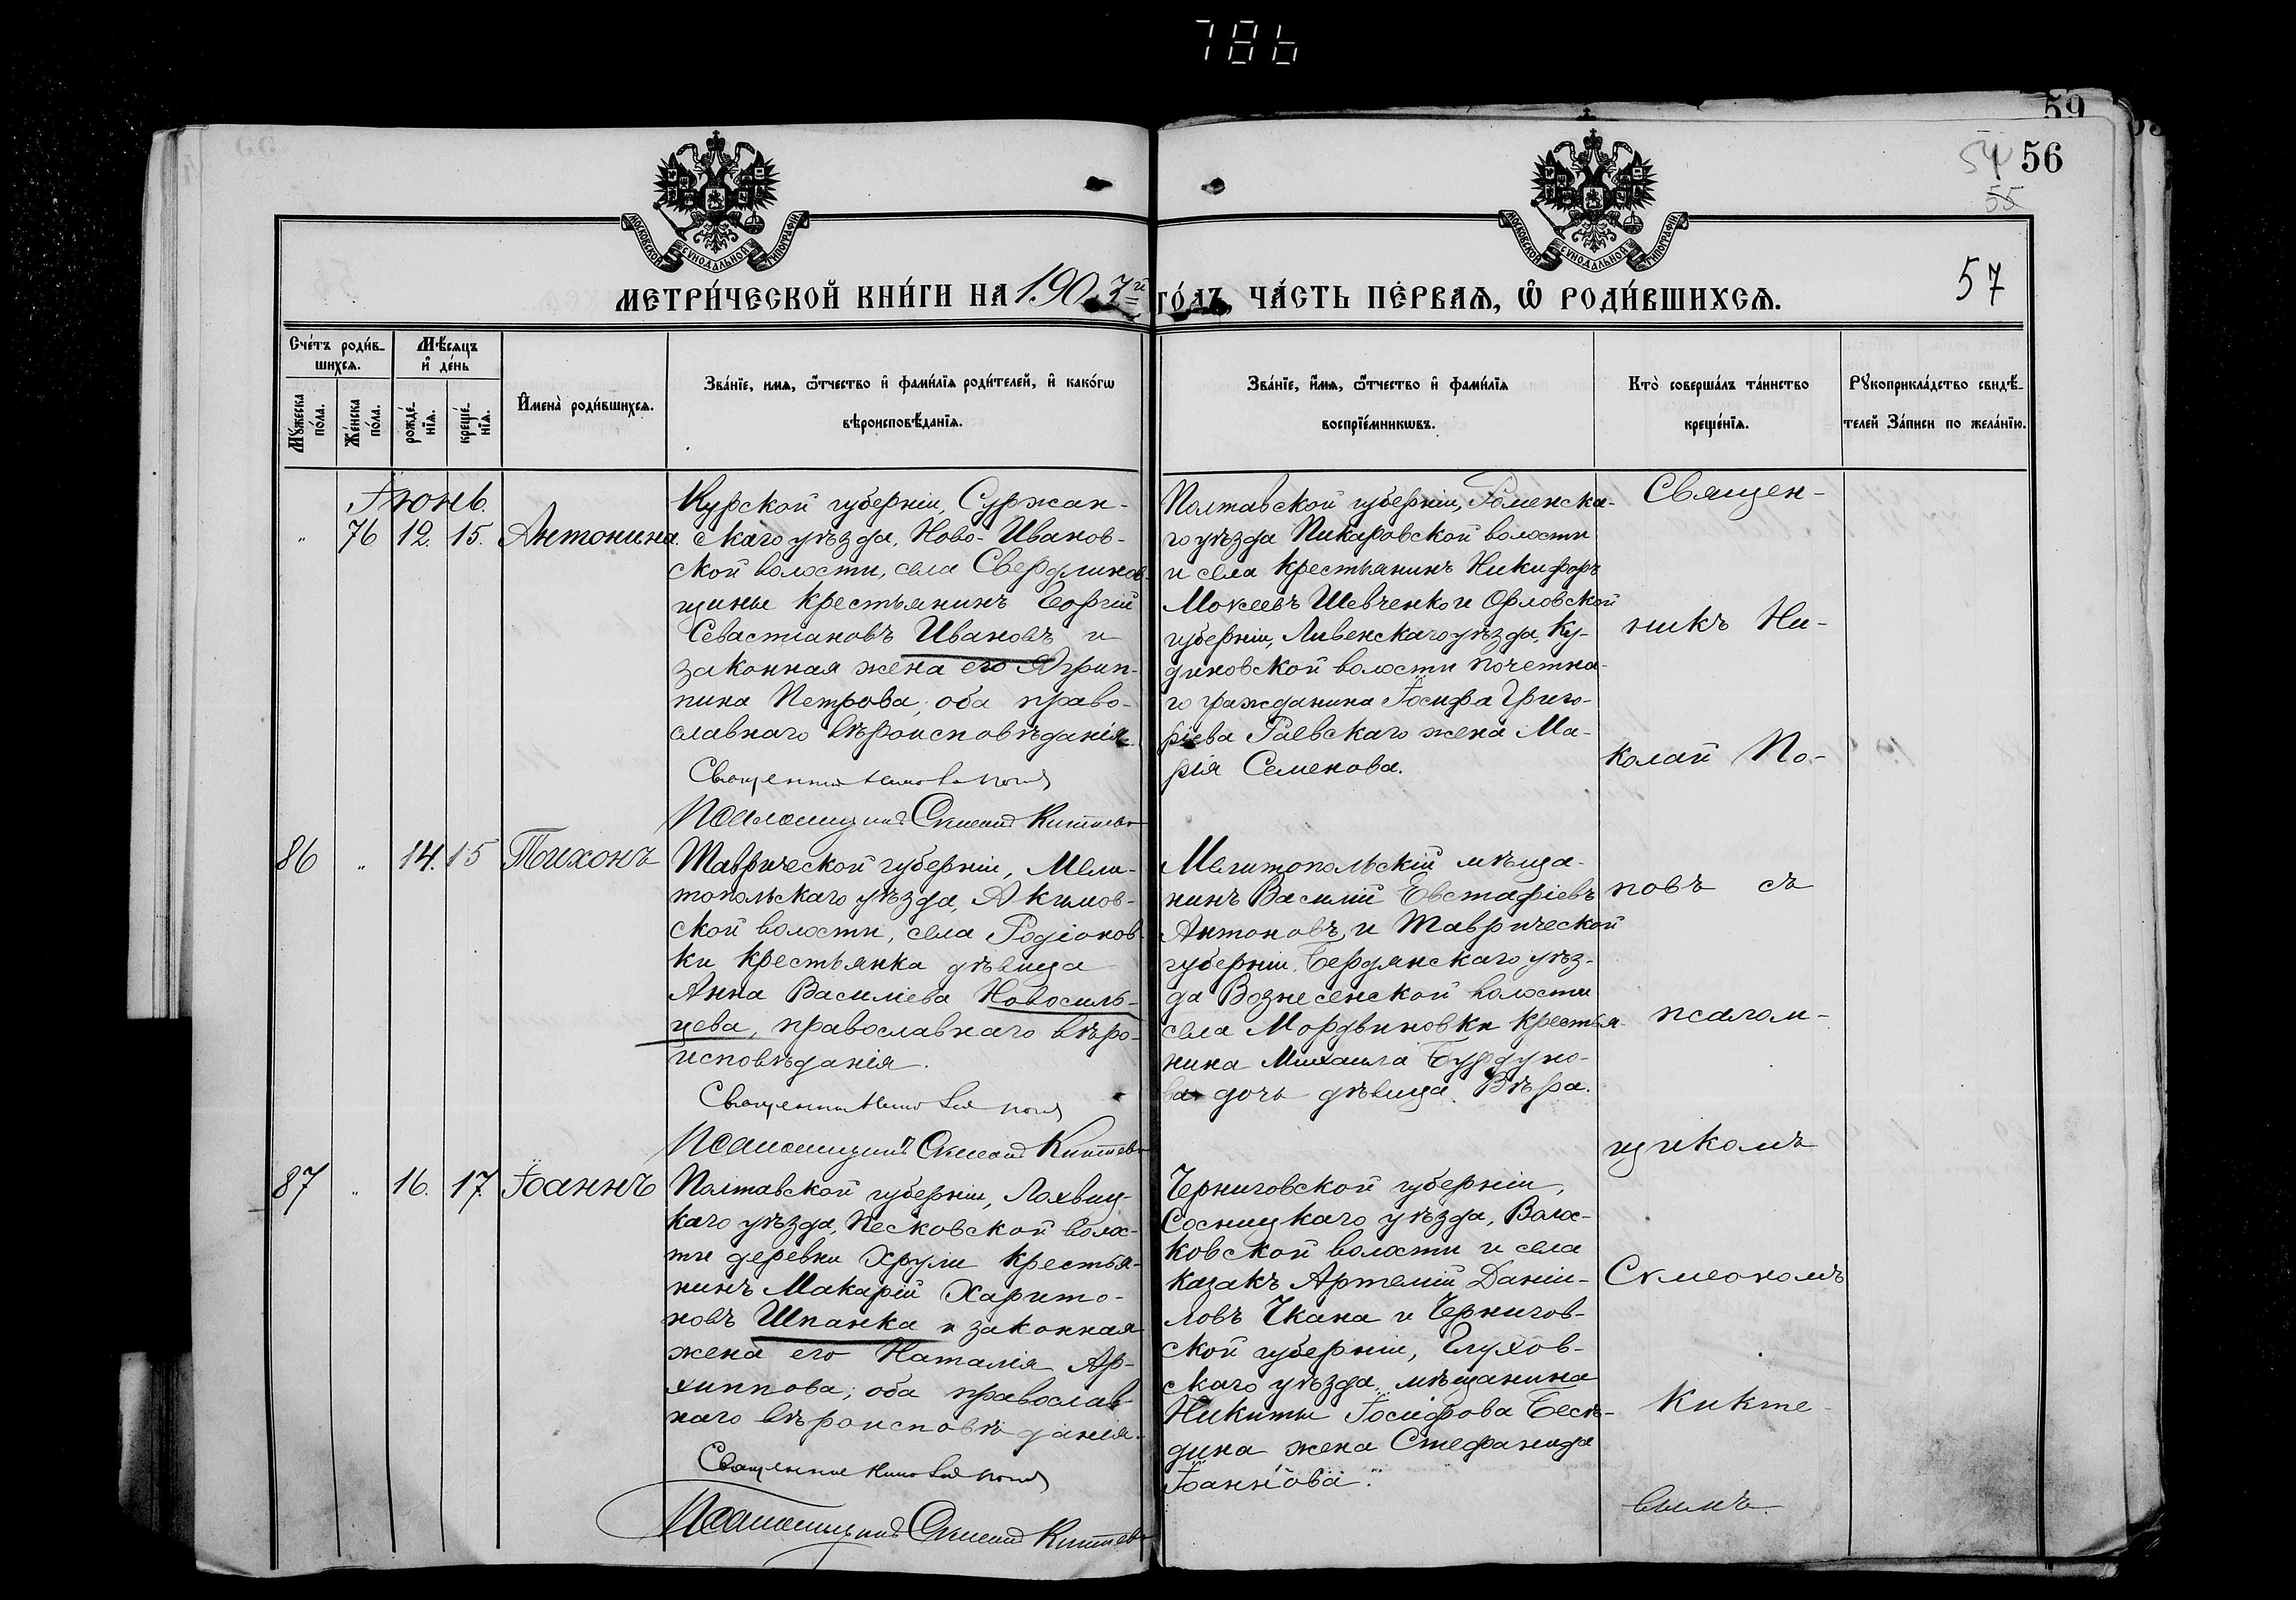 786
59
54
56
55
МОСКОВСКОЙ СУНОДАЛЬНОЙ ТИПОГРАФІИ
МОСКОВСКОЙ СУНОДАЛЬНОЙ ТИПОГРАФІИ
57
МЕТРИ́ЧЕСКОЙ КНИ́ГИ НА 1907й ГО́ДЪ, ЧА́СТЬ ПЕ́РВАѦ, Ѡ҆ РОДИ́ВШИХСѦ.
Сче́тъ роди́в-
шихсѧ.
Мꙋ́жеска по́ла.
Же́нска по́ла.
Мѣ́сѧцъ
и҆ де́нь
рожде́-
нїѧ.
креще́-
нїѧ.
И҆мена̀ роди́вшихсѧ.
Зва́нїе, имѧ, ѻ҆́тчество и҆ фами́лїѧ роди́телей, и҆ како́гѡ
вѣроисповѣ́данїѧ.
Зва́нїе, и҆́мѧ, ѻ҆́тчество и҆ фами́лїѧ
воспрїе́мникѡвъ.
Кто̀ соверша́лъ та́инство
креще́нїѧ.
Рꙋкоприкла́дство свидѣ́-
телей За́писи по жела́нїю.
Іюнь.
" 76 12. 15. Антонина.
Курской губерніи, Суржан-
скаго уѣзда, Ново-Иванов-
ской волости, села Свердликов-
щины крестьянинъ Георгій
Севастіановъ Ивановъ и
законная жена его Агрип-
пина Петрова; оба право-
славнаго вѣроисповѣданія.
Священникъ Николай Поповъ
Псаломщикъ Симеонъ Киктевъ
Полтавской губерніи, Роменска-
го уѣзда Пикаровской волости
и села крестьянинъ Никифоръ
Мокеевъ Шевченко и Орловской
губерніи, Ливенскаго уѣзда, Ку-
диновской волости почетна-
го гражданина Іосифа Григо-
ріева Раевскаго жена Ма-
рія Семенова.
86 " 14. 15 Тихонъ
Таврической губерніи, Мели-
топольскаго уѣзда, Акимов-
ской волости, села Родіонов-
ки крестьянка дѣвица
Анна Василіева Новосиль-
цева, православнаго вѣро-
исповѣданія.
Священникъ Николай Поповъ
Псаломщикъ Симеонъ Киктевъ
Мелитопольскій мѣща-
нинъ Василій Евстафіевъ
Антоновъ, и Таврической
губерніи, Бердянскаго уѣз-
да Вознесенской волости
села Мордвиновки крестья-
нина Михаила Бурдуко-
ва дочь дѣвица Вѣра.
87 " 16. 17 Іоаннъ
Полтавской губерніи, Лохвиц-
каго уѣзда, Песковской волос-
ти деревни Хрули крестья-
нинъ Макарій Харито-
новъ Шпанка и законная
жена его Наталія Ар-
хиппова; оба православ-
наго вѣроисповѣданія.
Священникъ Николай Поповъ
Псаломщикъ Симеонъ Киктевъ
Черниговской губерніи,
Сосницкаго уѣзда, Волос-
ковской волости и села
казакъ Артемій Даніи-
ловъ Чкана и Чернигов-
ской губерніи, Глухов-
скаго уѣзда, мѣщанина
Никиты Іосифова Бесѣ-
дина жена Стефанида
Іоаннова.
Священ-
никъ Ни-
колай По-
повъ съ
псалом-
щикомъ
Сѵмеономъ
Кикте-
вымъ.